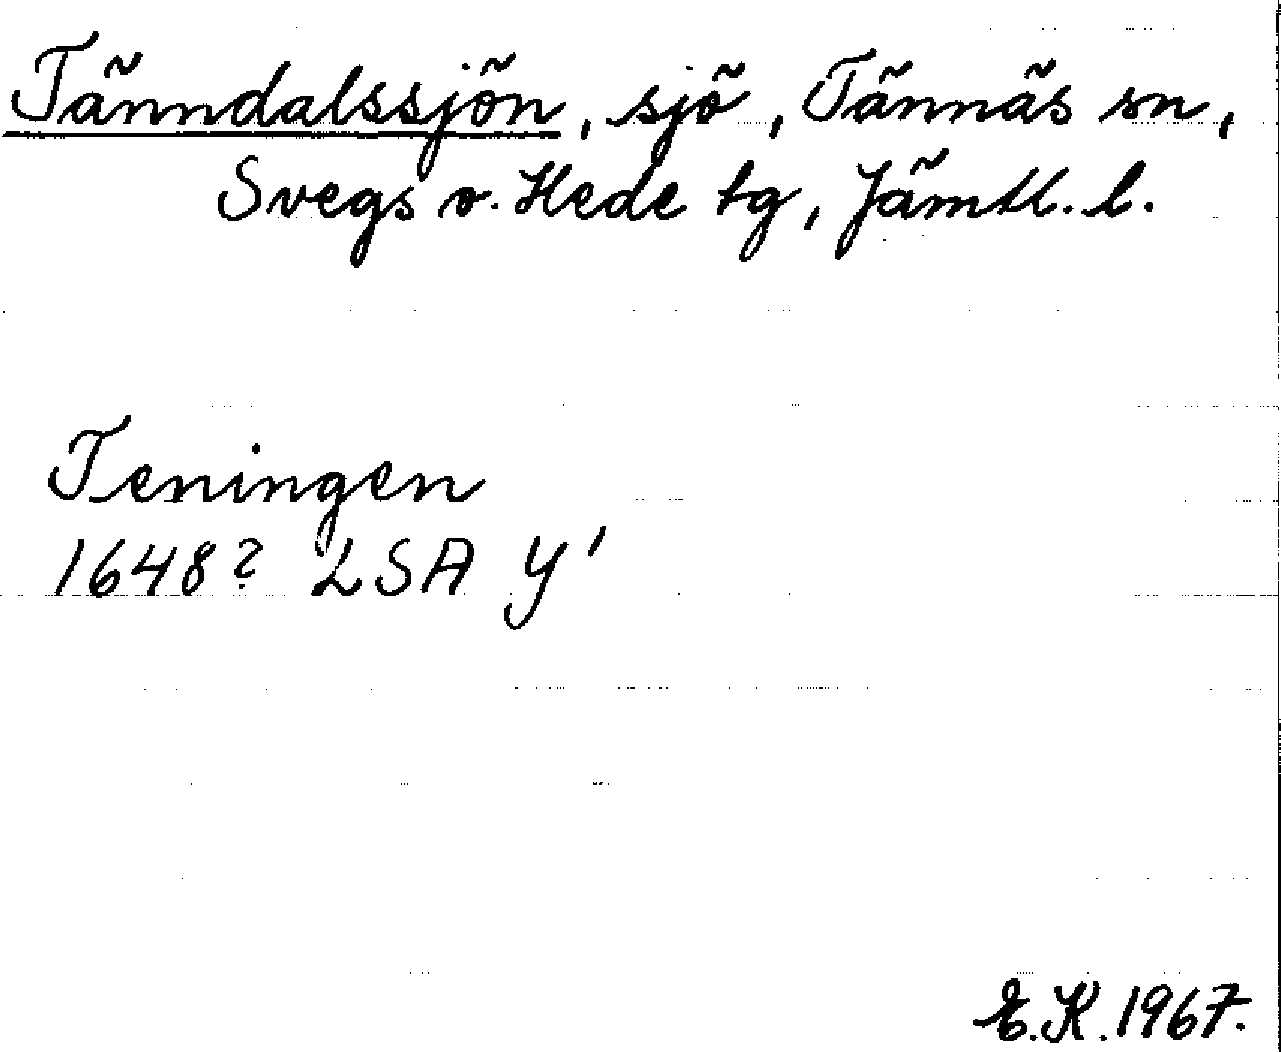 Tänndalssjön, sjö, Tännäs sn,
Svegs o. Hede tg, Jämtl. l.
Teningen
1648? LSA Y'
E.K. 1967.